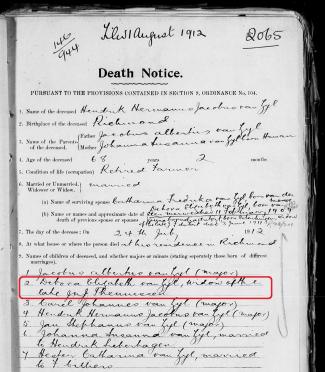 31 August 1912
2065
Death Notice.
PURSUANT TO THE PROVISIONS CONTAINED IN SECTION 9, ORDNANCE No. 104.
1. Name of the deceased Hendrik Hermanus Jacobus van Zyl
2. Birthplace of the deceased Richmond
3. Names of the Parents of the deceased Father Jacobus Albertus van Zyl
Mother Johanna Susanna van Zyl born
4. Age of the deceased 68 years 2 months
5. Condition of life (occupation) Retired Farmer
6. Married or Unmarried, Widower or Widow. married
(a) Name of surviving spouse Catharina Fredrika van Zyl born van der
(b) Name or names and approximate date of death of previous spouse or spouses
7. The day of the decease: On 24th July 1912
8. At what house or where the person died at his residence in Richmond
9. Names of children of deceased, and whether majors or minors (stating separately those born of different marriages).
1 Jacobus Albertus van Zyl (major)
2 Debora Elizabeth van Zyl, widow of the
late
3 Carel Johannes van Zyl (major)
4 Hendrik Hermanus Jacobus van Zyl (major)
5 Jan Stephanus van Zyl (major)
6 Johanna Susanna van Zyl, married
to Hendrik Liebenhagen
7 Hester Catharina van Zyl, married
to